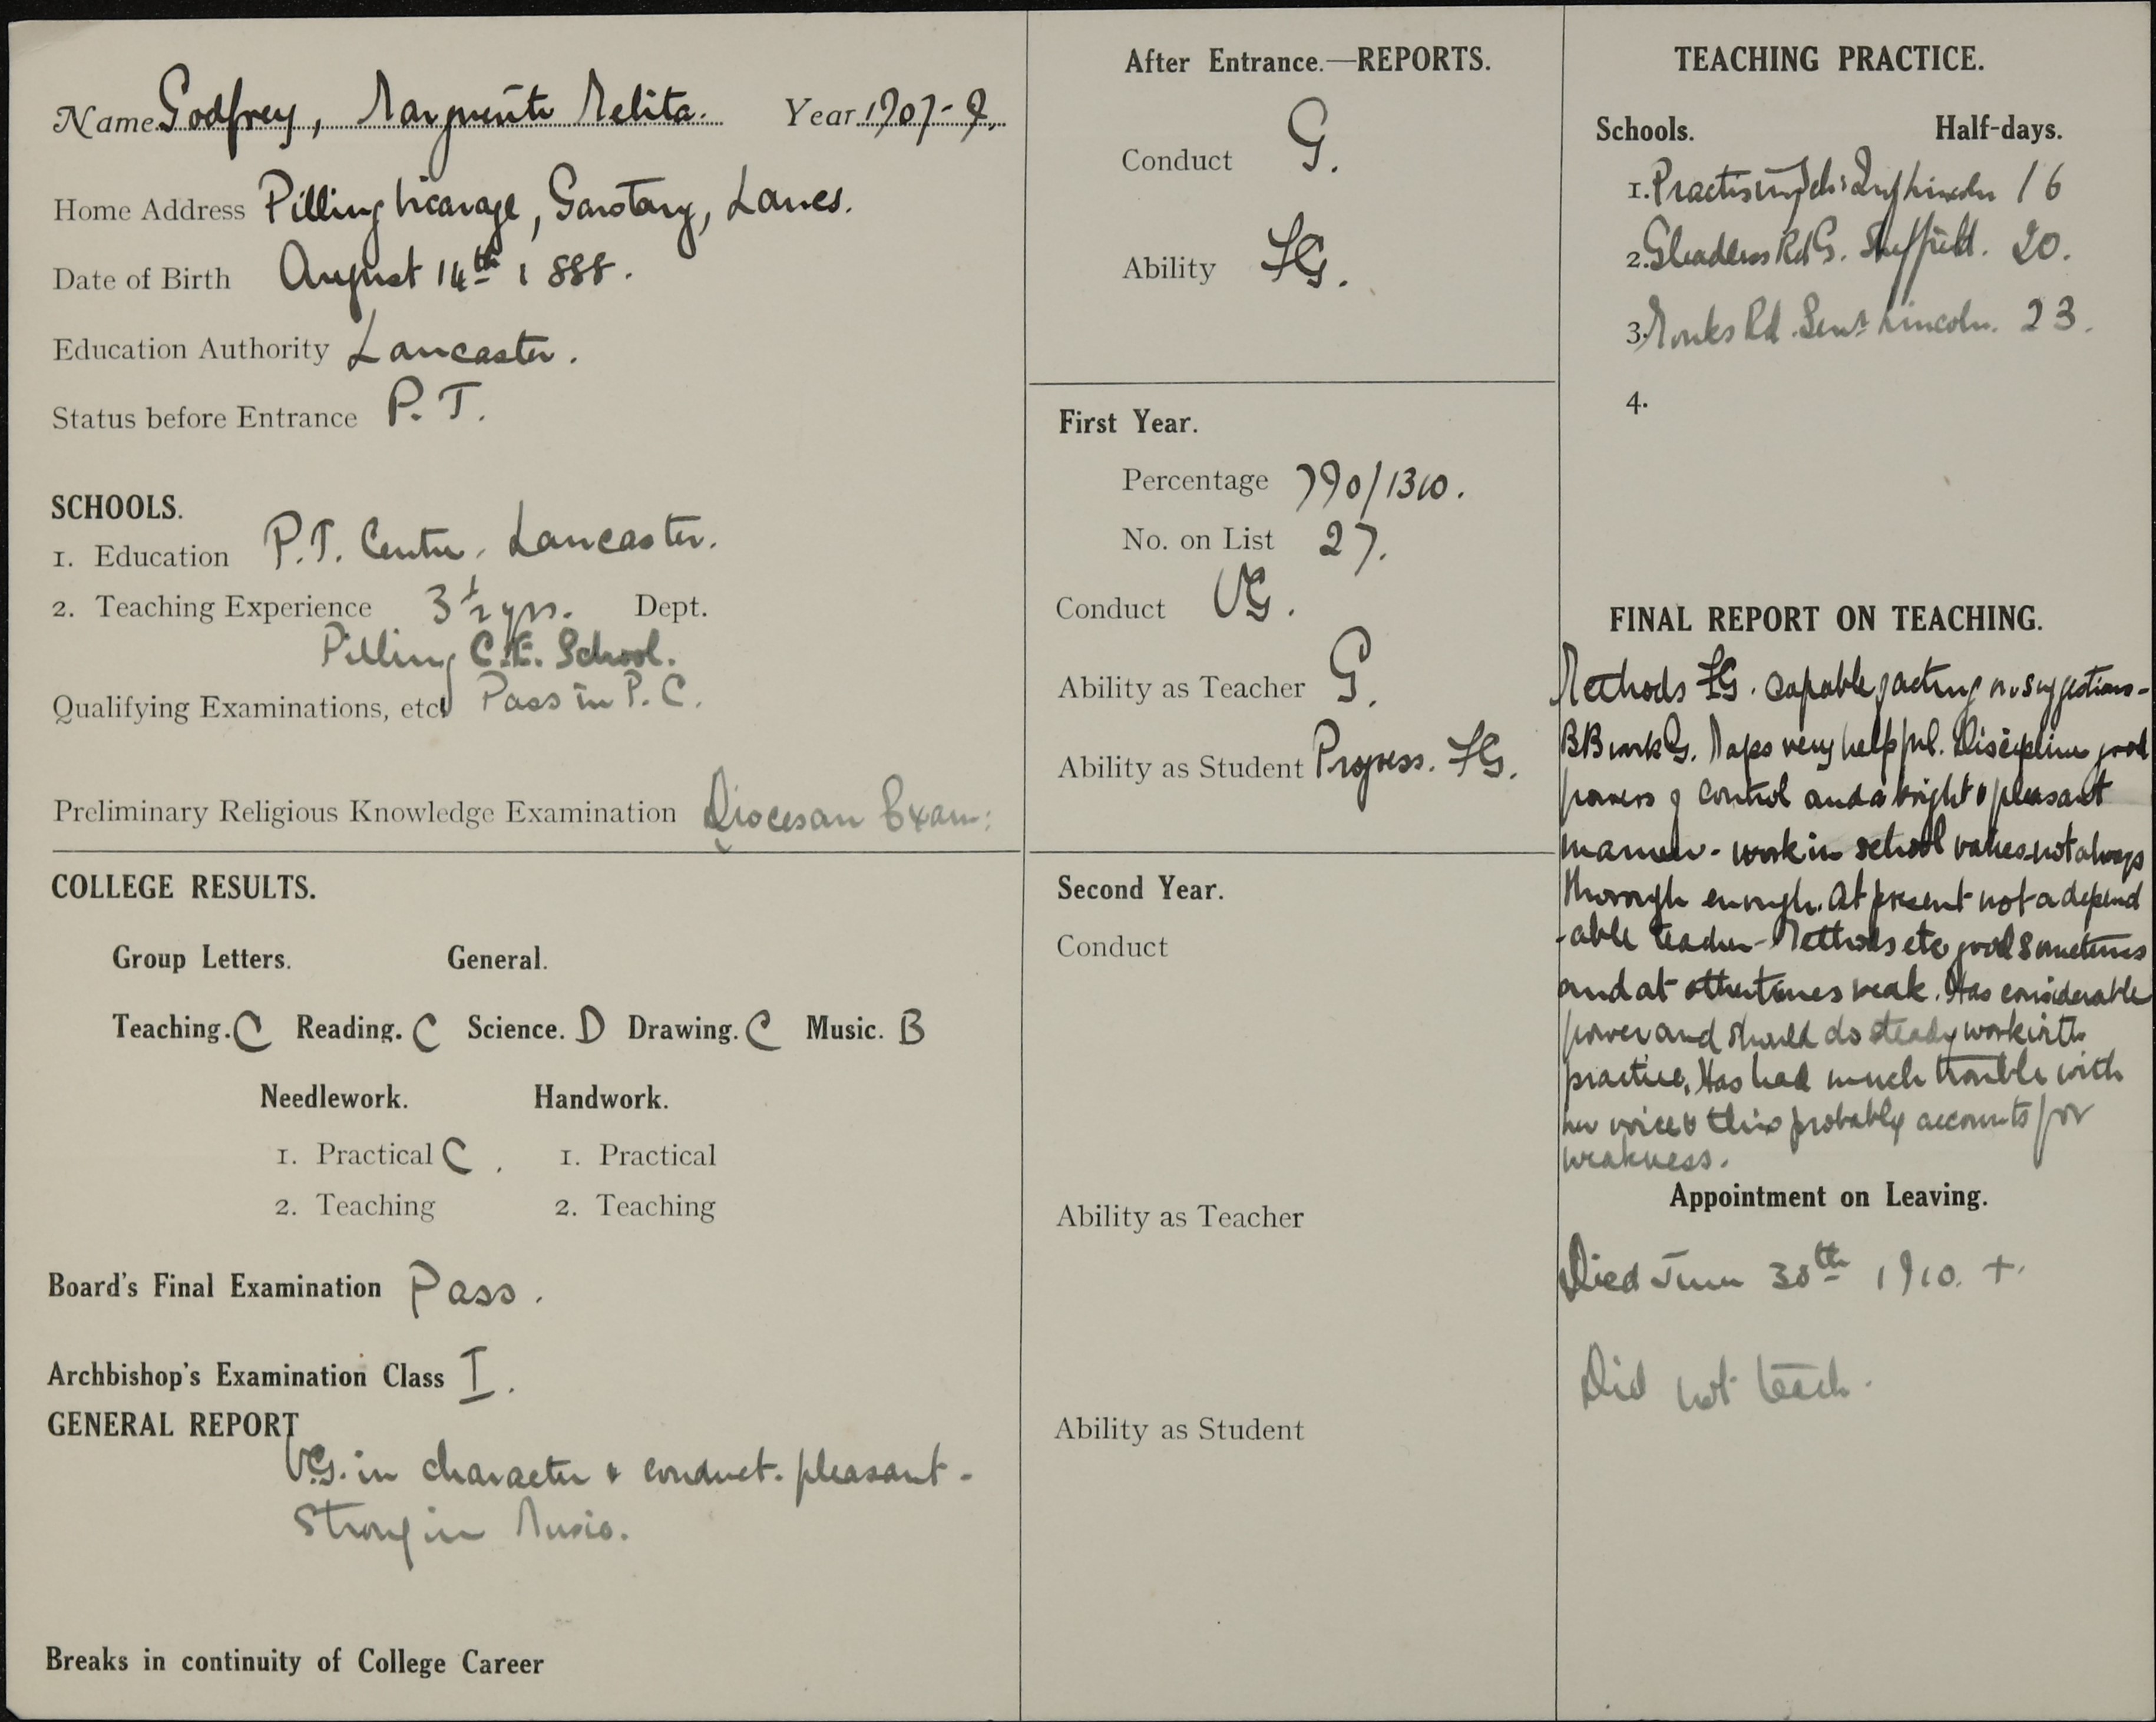 Name Godfrey, Marguerite Melita. Year 1907-9.
Home Address Pilling Vicarage, Garstang, Lancs.
Date of Birth August 14th 1888.
Education Authority Lancaster.
Status before Entrance P.T.
SCHOOLS.
1. Education P.T. Centre, Lancaster.
2. Teaching Experience 3½ yrs. Dept.
Pilling C.E. School.
Qualifying Examinations, etc. Pass in P.C.
Preliminary Religious Knowledge Examination Diocesan Exam:
COLLEGE RESULTS.
Group Letters. General.
Teaching. C Reading. C Science. D Drawing. C Music. B
Needlework. Handwork.
1. Practical C. 1. Practical
2. Teaching 2. Teaching
Board's Final Examination Pass.
Archbishop's Examination Class I.
GENERAL REPORT
V.G. in character & conduct. pleasant -
Strong in Music.
Breaks in continuity of College Career
After Entrance.—REPORTS.
Conduct G.
Ability FG.
First Year.
Percentage 790/1310.
No. on List 27.
Conduct VG.
Ability as Teacher G.
Ability as Student Progress. FG.
Second Year.
Conduct
Ability as Teacher
Ability as Student
TEACHING PRACTICE.
Schools. Half-days.
1. Practising Sch: Inf Lincoln 16
2. Gleadless Rd G. Sheffield. 20.
3. Monks Rd. Senr Lincoln. 23.
4.
FINAL REPORT ON TEACHING.
Methods FG. Capable of acting on suggestions -
BB work G. Maps very helpful. Discipline good
powers of control and a bright & pleasant
manner - work in school varies - not always
thorough enough. At present not a depend
-able teacher - Methods etc good sometimes
and at other times weak. Has considerable
power and should do steady work with
practice. Has had much trouble with
her voice & this probably accounts for
weakness.
Appointment on Leaving.
Died June 30th 1910. +.
Did not teach.